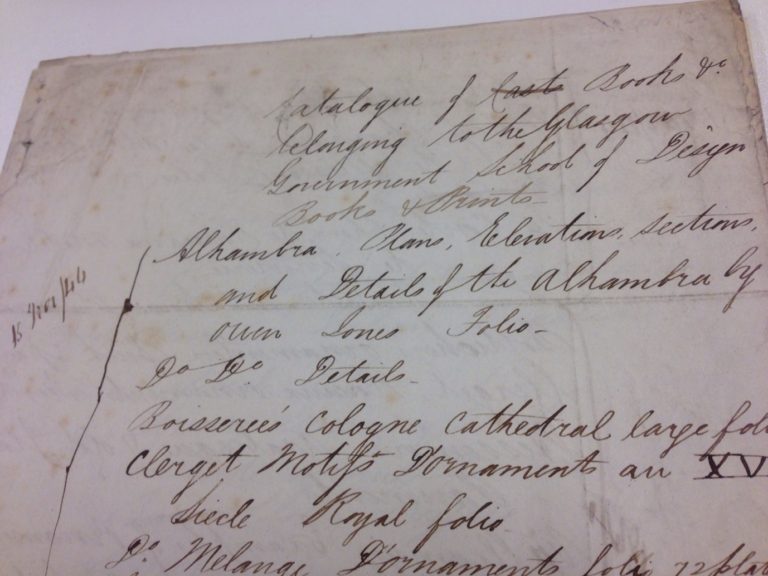 Catalogue of Casts Books &c
belonging to the Glasgow
Government School of Design
Books & Prints
Alhambra. Plans, Elevations, Sections,
and Details of the Alhambra by
Owen Jones Folio-
15 Nov/46
Do Do Details-
Boisserée's Cologne Cathedral large foli
Clerget Motifs D'ornaments au XV
Siecle Royal folio
Do Melange D'ornaments folio 72 plat